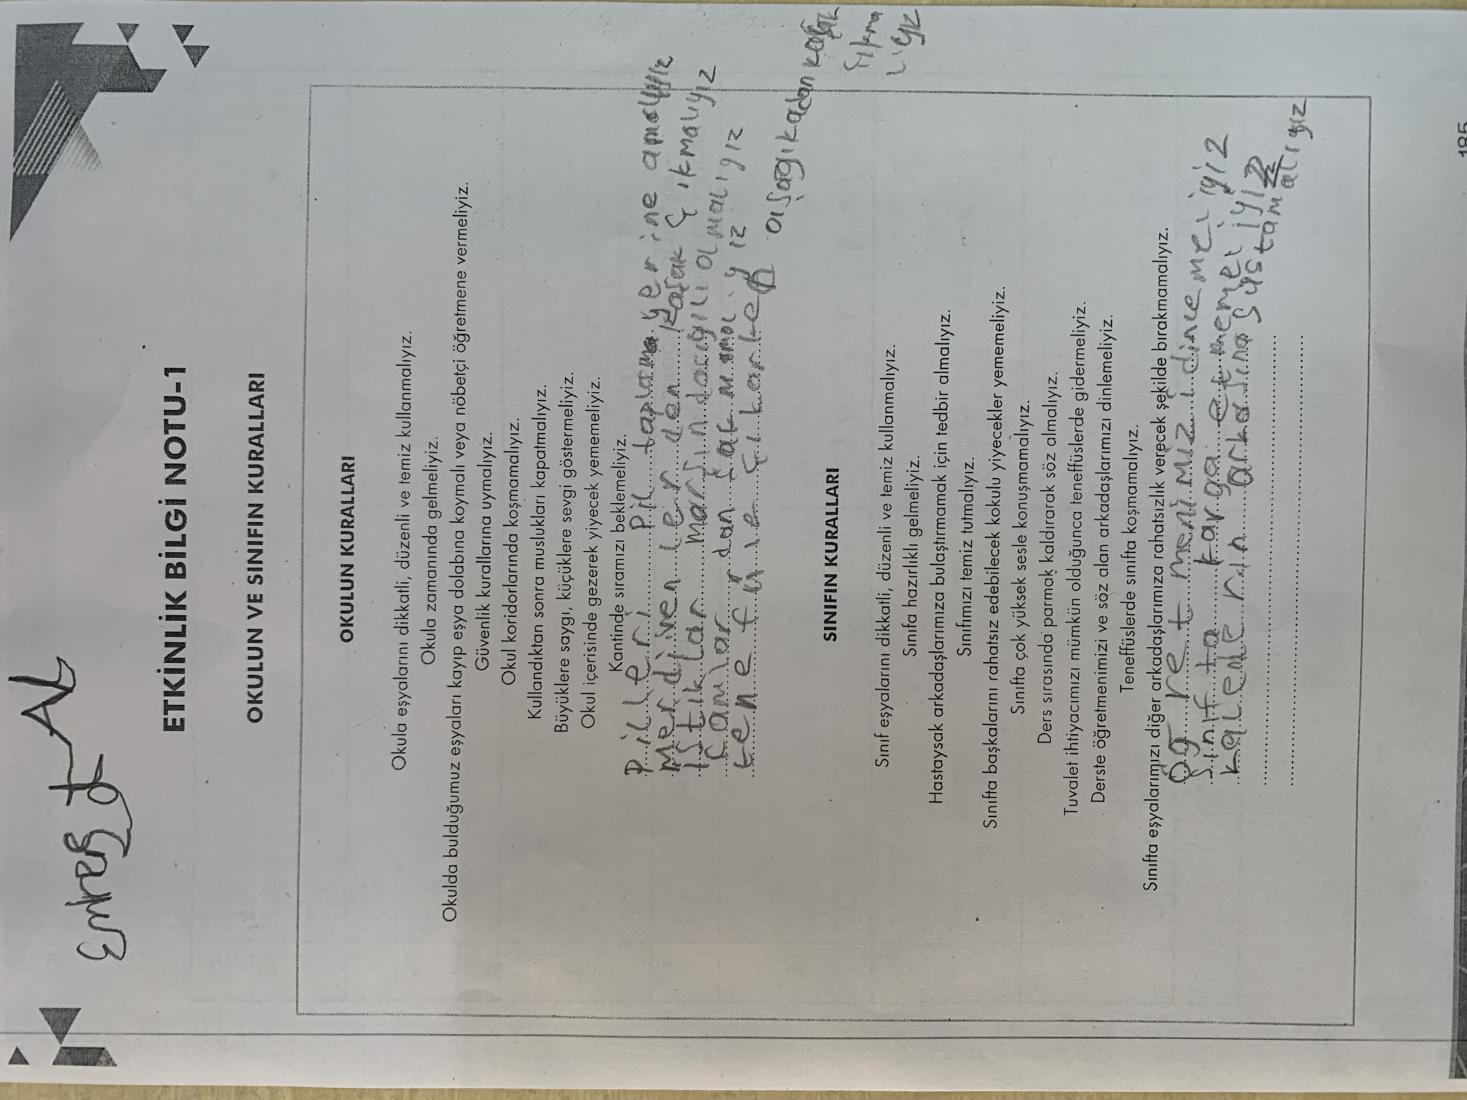 ETKİNLİK BİLGİ NOTU-1
OKULUN VE SINIFIN KURALLARI
OKULUN KURALLARI
Okula eşyalarını dikkatli, düzenli ve temiz kullanmalıyız.
Okula zamanında gelmeliyiz.
Okulda bulduğumuz eşyaları kayıp eşya dolabına koymalı veya nöbetçi öğretmene vermeliyiz.
Güvenlik kurallarına uymalıyız.
Okul koridorlarında koşmamalıyız.
Kullandıktan sonra muslukları kapatmalıyız.
Büyüklere saygı, küçüklere sevgi göstermeliyiz.
Okul içerisinde gezerek yiyecek yememeliyiz.
Kantinde sıramızı beklemeliyiz.
Pilleri Pil toplama yerine
Merdiven ler den Koşak Çıkmalıyız
İstiklar Marşında olmalıyız
Camlar dan
tenefüse Çıkarken
SINIFIN KURALLARI
Sınıf eşyalarını dikkatli, düzenli ve temiz kullanmalıyız.
Sınıfa hazırlıklı gelmeliyiz.
Hastaysak arkadaşlarımıza bulaştırmamak için tedbir almalıyız.
Sınıfımızı temiz tutmalıyız.
Sınıfta başkalarını rahatsız edebilecek kokulu yiyecekler yememeliyiz.
Sınıfta çok yüksek sesle konuşmamalıyız.
Ders sırasında parmak kaldırarak söz almalıyız.
Tuvalet ihtiyacımızı mümkün olduğunca teneffüslerde gidermeliyiz.
Derste öğretmenimizi ve söz alan arkadaşlarımızı dinlemeliyiz.
Teneffüslerde sınıfta koşmamalıyız.
Sınıfta eşyalarımızı diğer arkadaşlarımıza rahatsızlık verecek şekilde bırakmamalıyız.
Öğ ret menimizi dinlemeliyiz
Sınıfta kavga etmemeliyiz
185